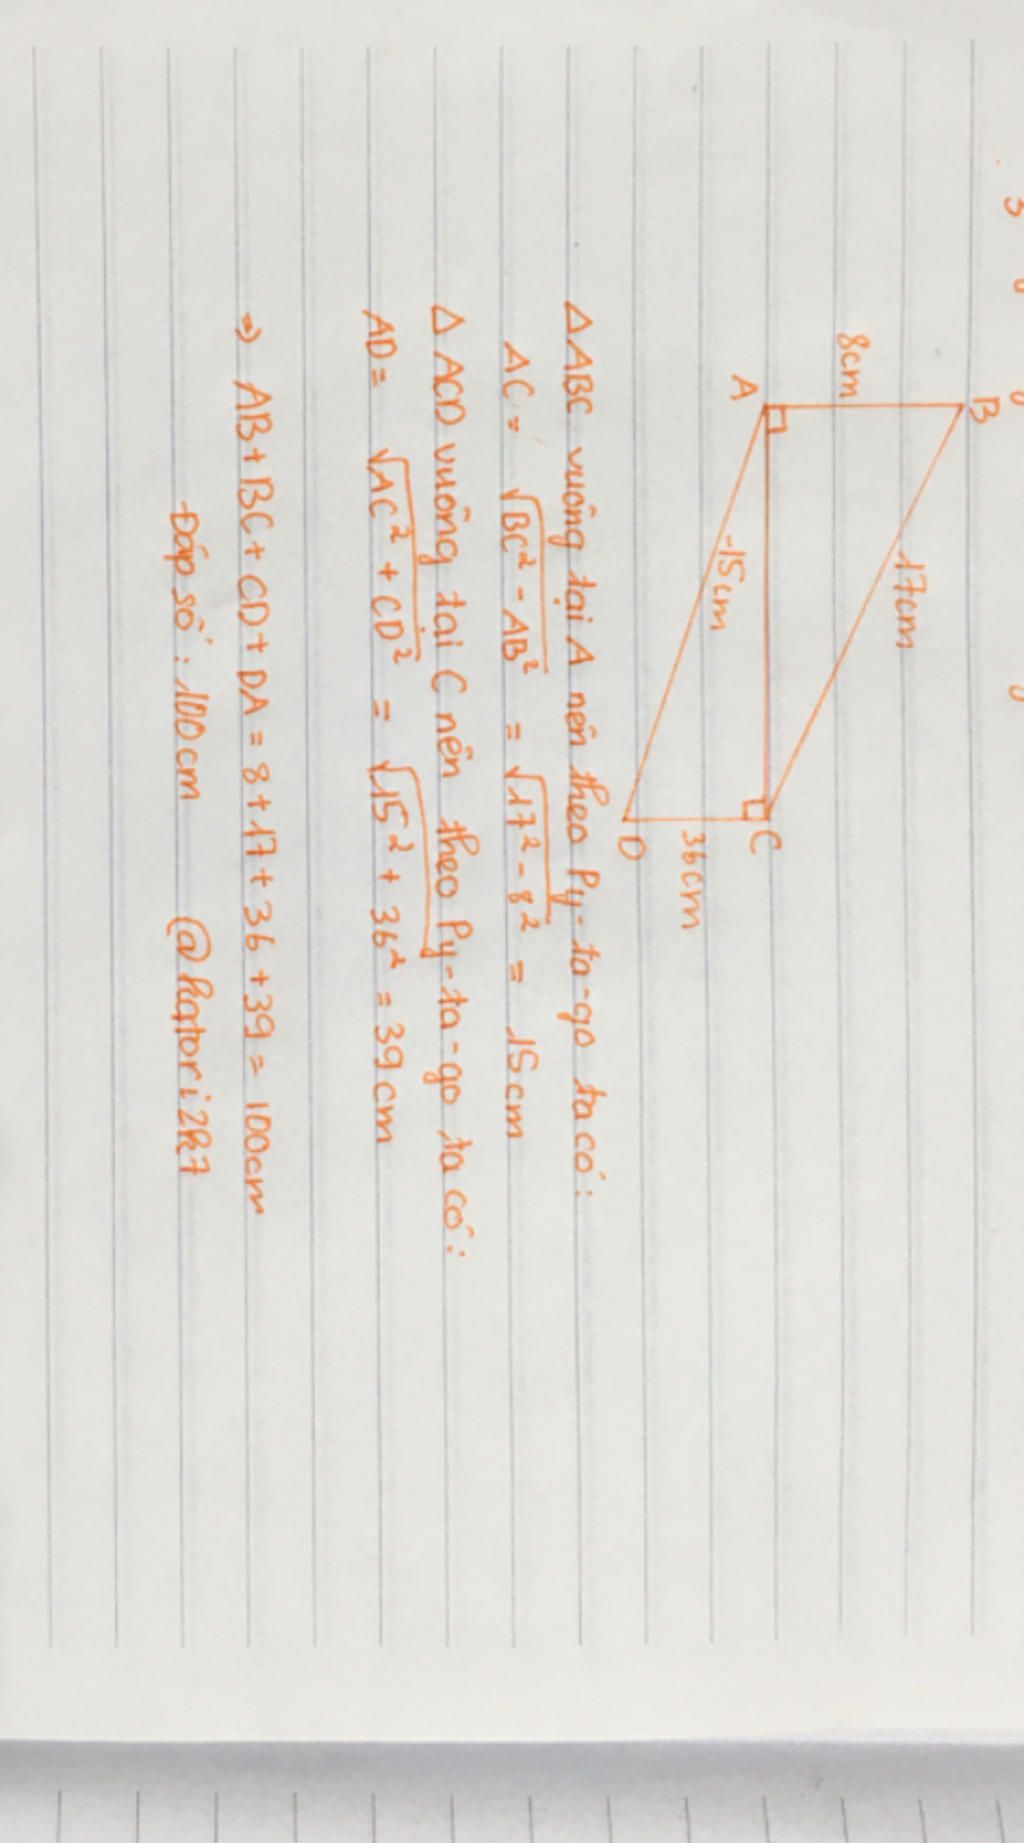 B
8cm
17cm
A
C
-15cm
36cm
D
Δ ABC vuông tại A nên theo Py-ta-go ta có:
AC = √BC² - AB² = √17² - 8² = 15cm
Δ ACD vuông tại C nên theo Py-ta-go ta có:
AD = √AC² + CD² = √15² + 36² = 39cm
⇒ AB + BC + CD + DA = 8 + 17 + 36 + 39 = 100cm
Đáp số: 100cm @hatori2k7